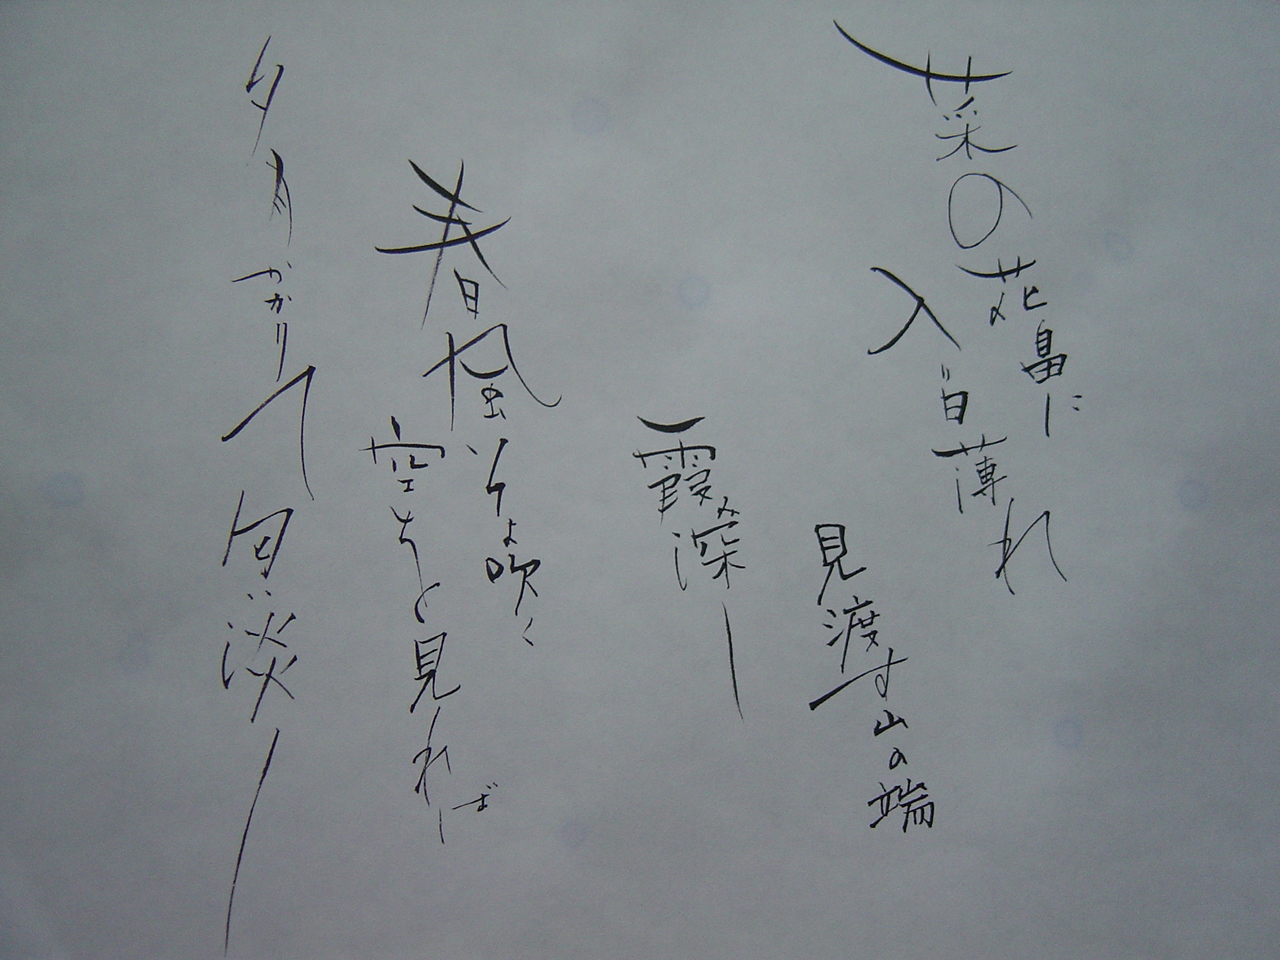 菜の花畠に
入り日薄れ
見渡す山の端
霞み深し
春風そよ吹く
空を見れば
夕月かかりて匂い淡し